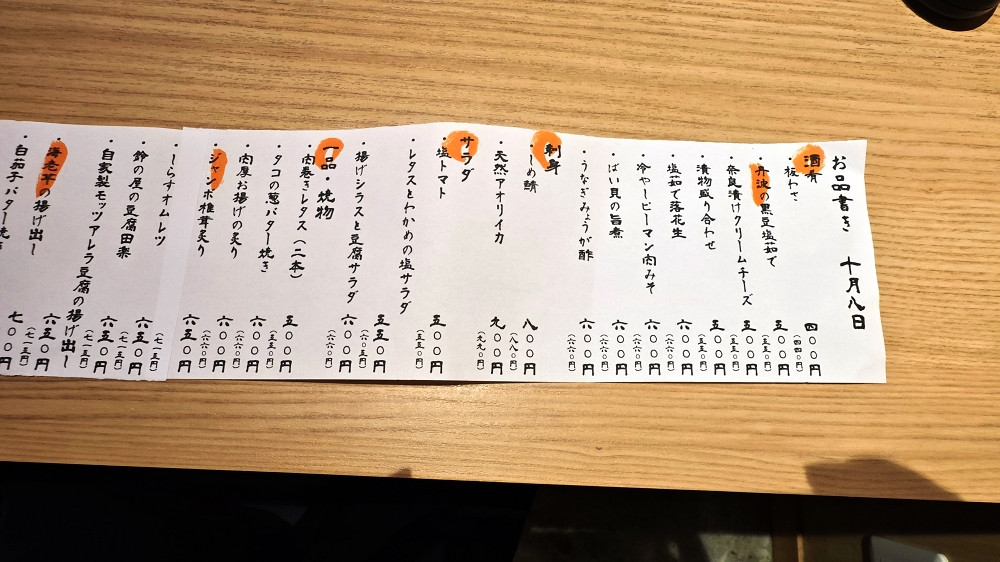 お品書き 十月八日
酒肴
・板わさ 四〇〇円
(四四〇円)
・丹波の黒豆塩茹で 五〇〇円
(五五〇円)
・奈良漬けクリームチーズ 五〇〇円
(五五〇円)
・漬物盛り合わせ 五〇〇円
(五五〇円)
・塩茹で落花生 六〇〇円
(六六〇円)
・冷やしピーマン肉みそ 六〇〇円
(六六〇円)
・ばい貝の旨煮 六〇〇円
(六六〇円)
・うなぎみょうが酢 六〇〇円
(六六〇円)
刺身
・しめ鯖 八〇〇円
(八八〇円)
・天然アオリイカ 九〇〇円
(九九〇円)
サラダ
・塩トマト 五〇〇円
(五五〇円)
・レタスとわかめの塩サラダ 五五〇円
揚げシラスと豆腐サラダ 六〇〇円
一品・焼物
・肉巻きレタス(二本) 五〇〇円
(五五〇円)
・タコの葱バター焼き 六〇〇円
(六六〇円)
・肉厚お揚げの炙り 六〇〇円
(六六〇円)
・ジャンボ椎茸炙り 六五〇円
・しらすオムレツ
(七一五円)
・鈴の屋の豆腐田楽 六五〇円
(七一五円)
・自家製モッツアレラ豆腐の揚げ出し 六五〇円
(七一五円)
・海老芋の揚げ出し 六五〇円
(七一五円)
・白茄子バター焼き 七〇〇円